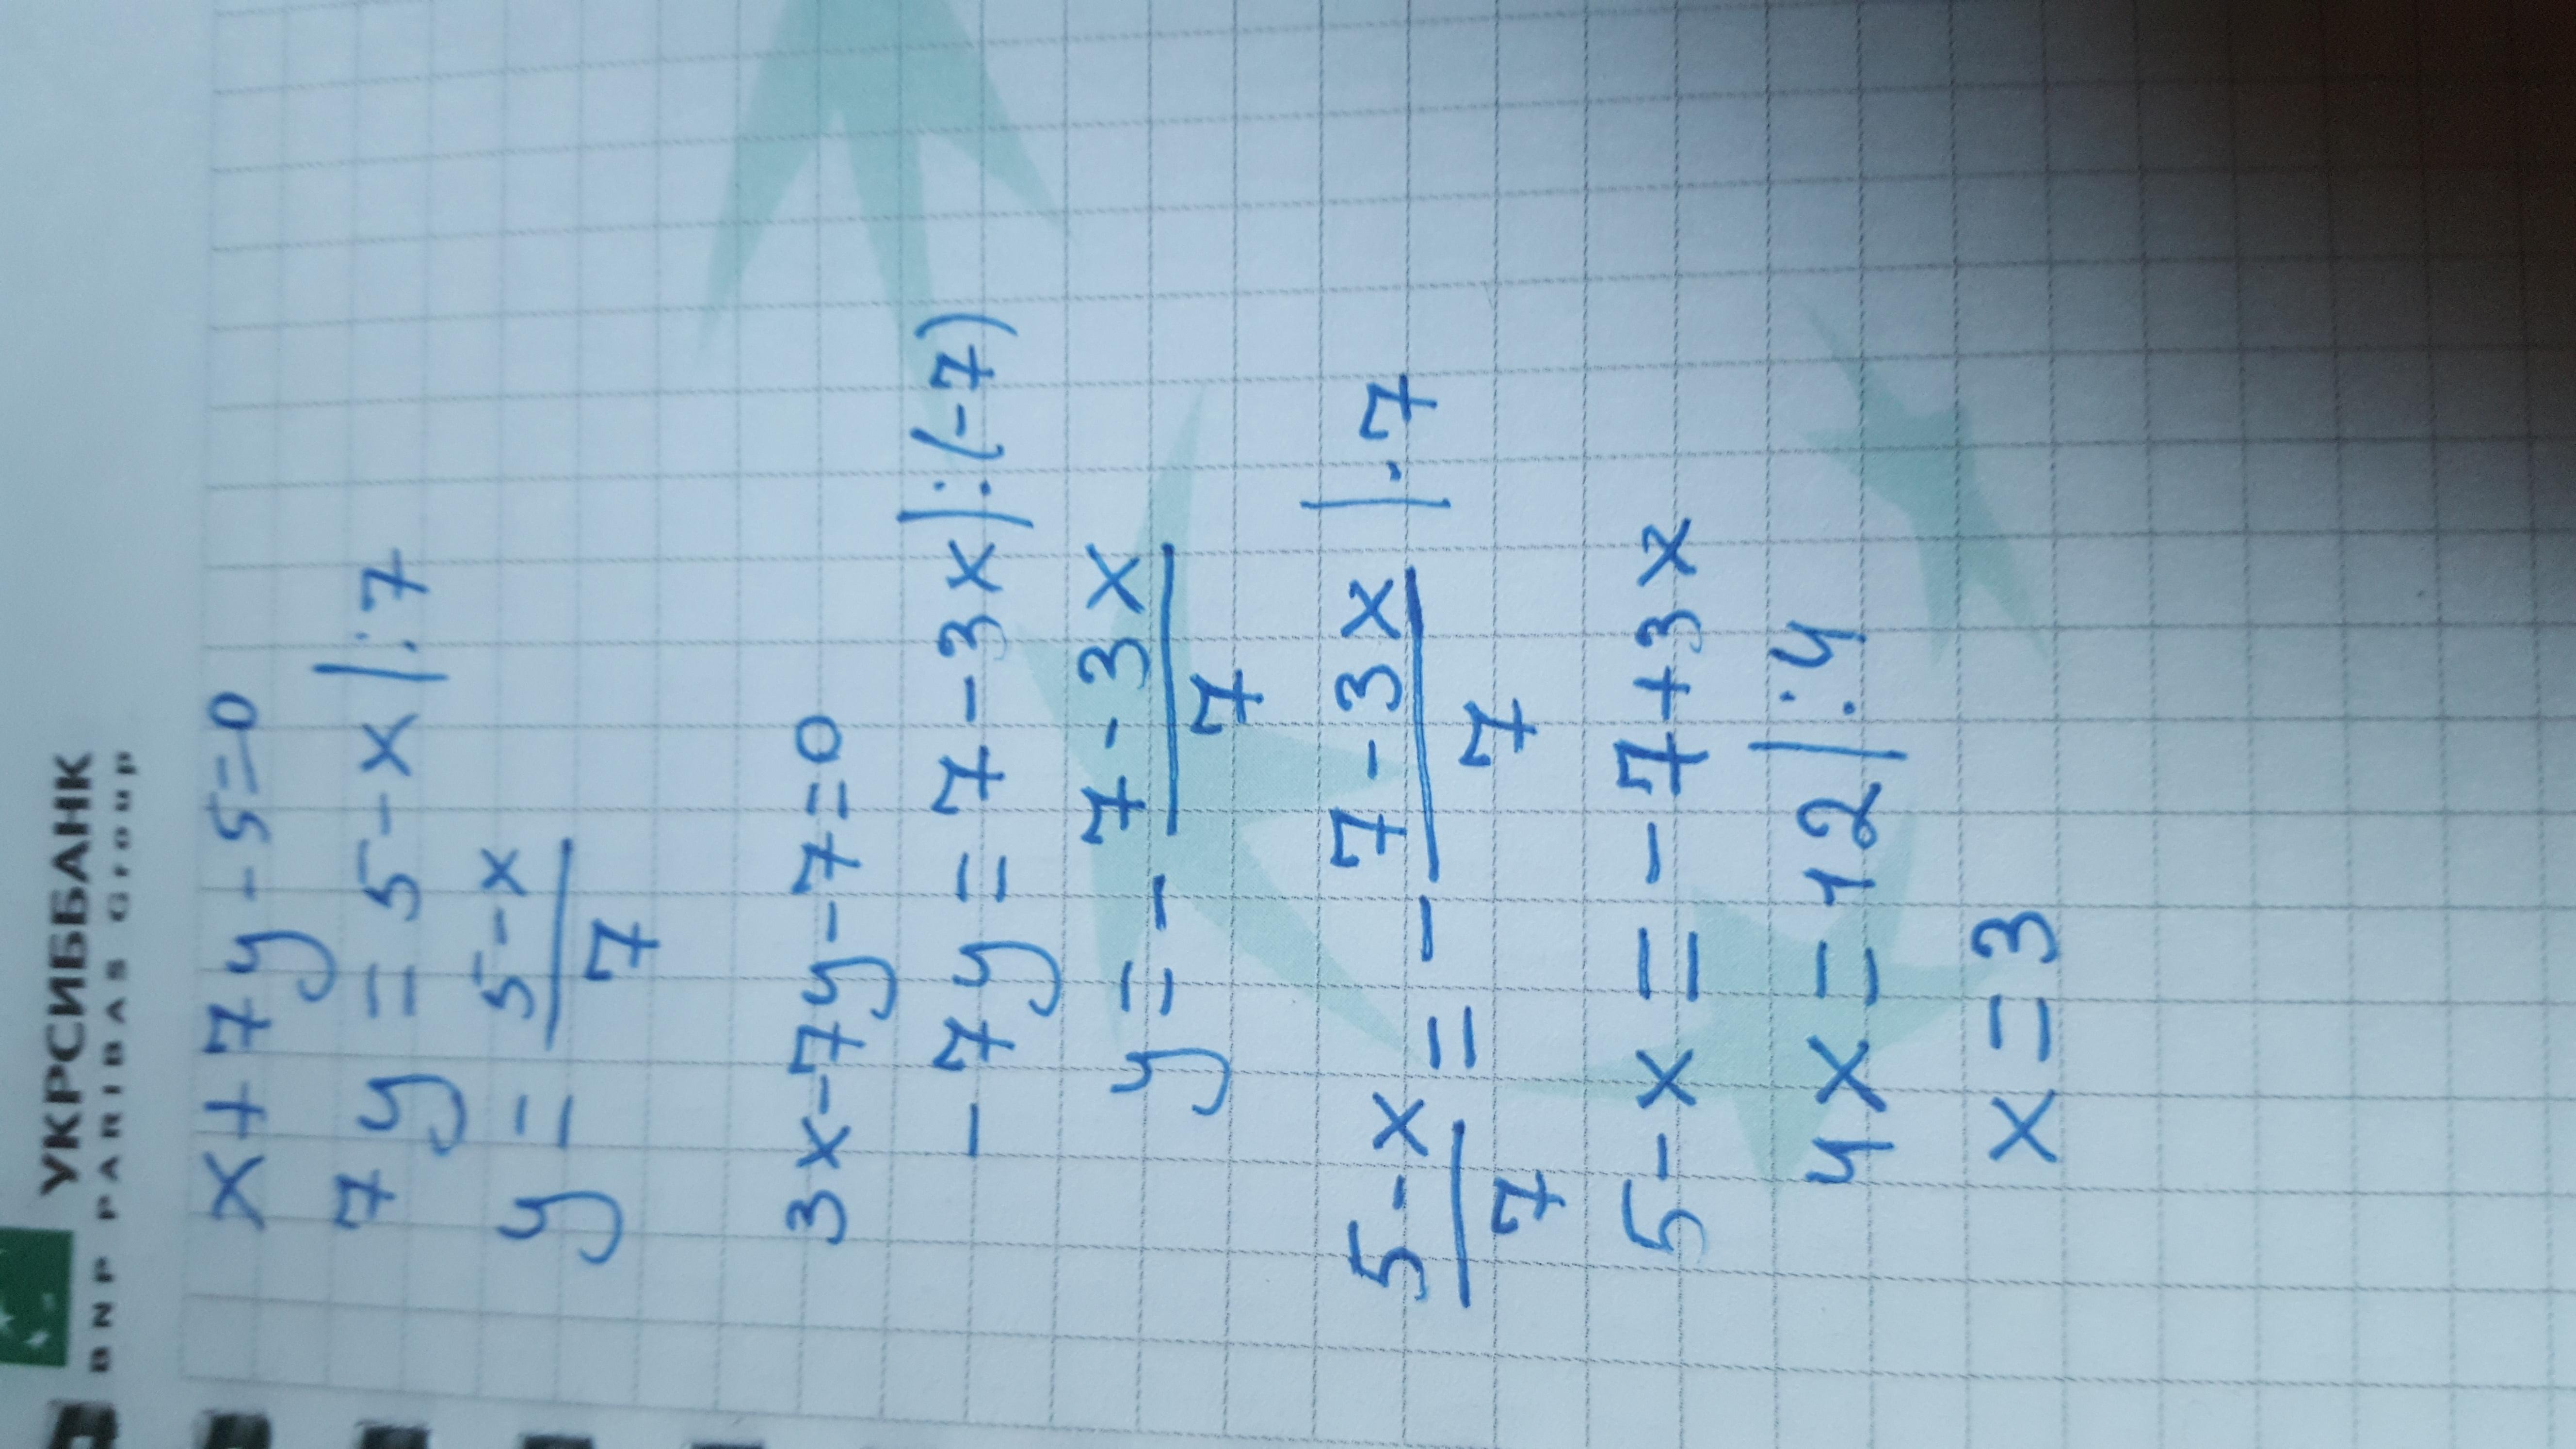 УКРСИББАНК
BNP PARIBAS Group
x+7y-5=0
7y=5-x|:7
y=5-x/7
3x-7y-7=0
-7y=7-3x|:(-7)
y=-7-3x/7
5-x/7=-7-3x/7|·7
5-x=-7+3x
4x=12|:4
x=3